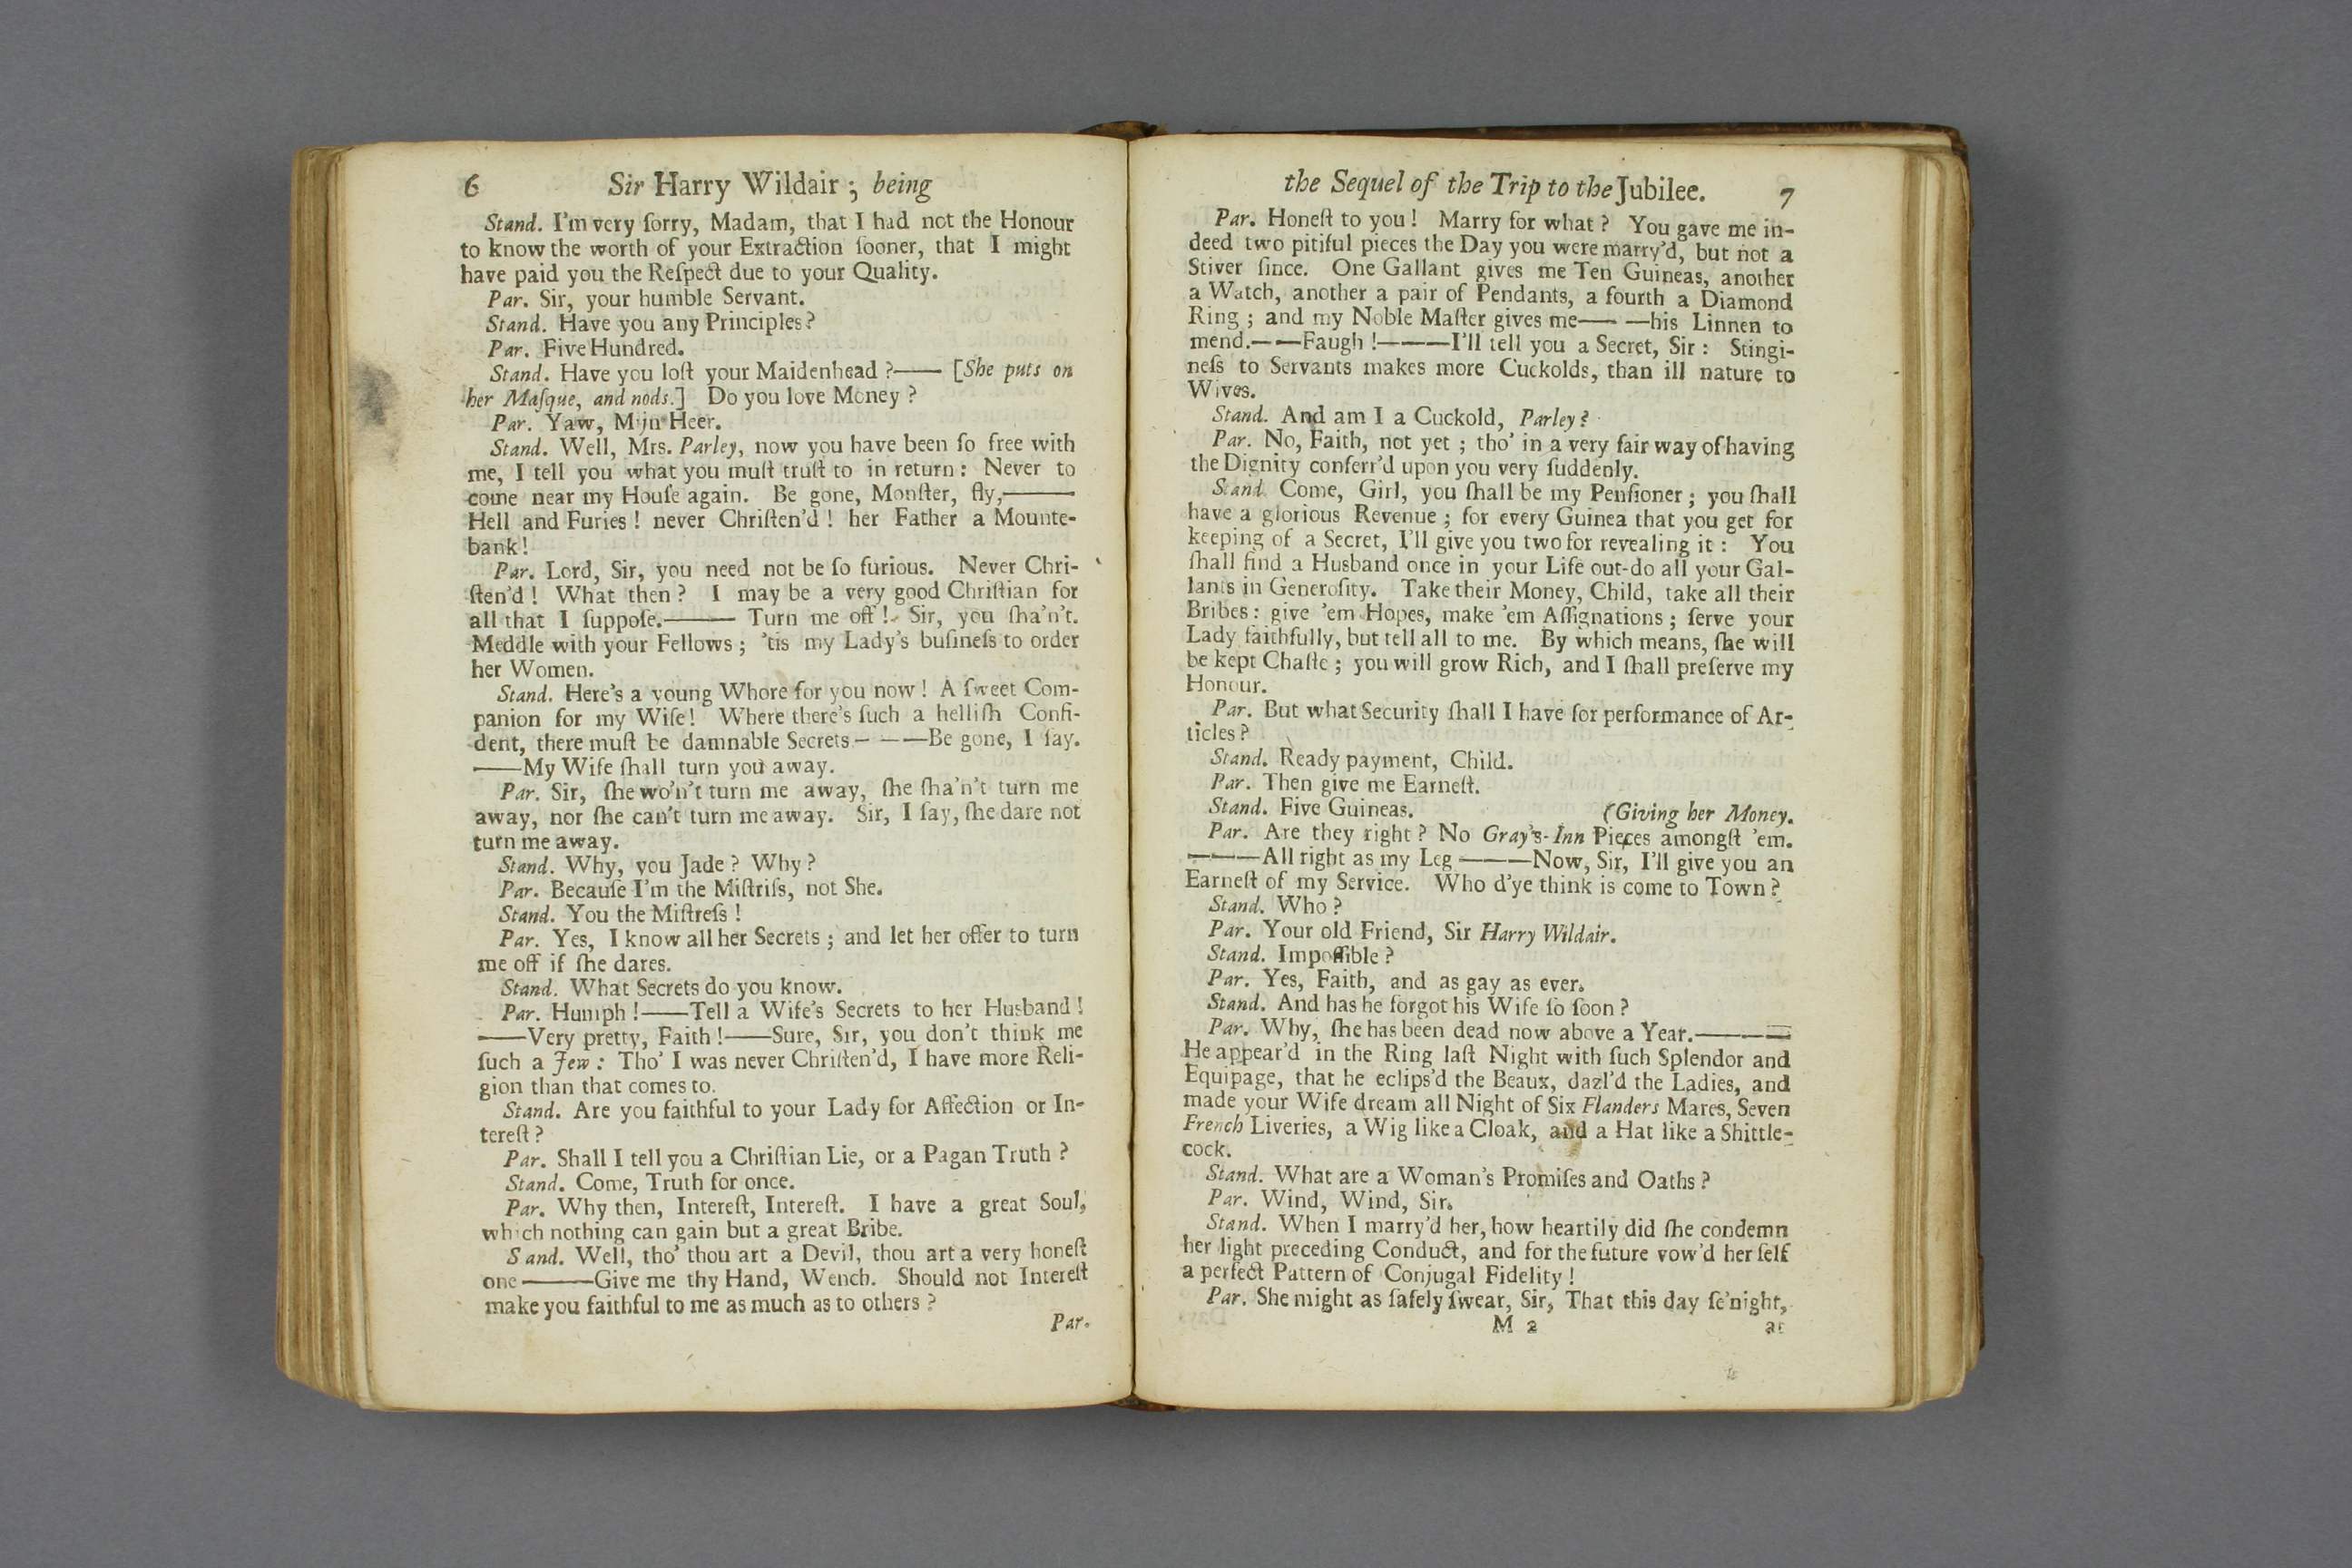 6 Sir Harry Wildair ; being
Stand. I'm very ſorry, Madam, that I had not the Honour
to know the worth of your Extraction ſooner, that I might
have paid you the Reſpect due to your Quality.
Par. Sir, your humble Servant.
Stand. Have you any Principles?
Par. Five Hundred.
Stand. Have you loſt your Maidenhead ?—— [She puts on
her Maſque, and nods.] Do you love Money ?
Par. Yaw, Mijn Heer.
Stand. Well, Mrs. Parley, now you have been ſo free with
me, I tell you what you muſt truſt to in return: Never to
come near my Houſe again. Be gone, Monſter, fly,———
Hell and Furies ! never Chriſten'd ! her Father a Mounte-
bank!
Par. Lord, Sir, you need not be ſo furious. Never Chri-
ſten'd ! What then ? I may be a very good Chriſtian for
all that I ſuppoſe.——— Turn me off ! Sir, you ſha'n't.
Meddle with your Fellows ; 'tis my Lady's buſineſs to order
her Women.
Stand. Here's a young Whore for you now ! A ſweet Com-
panion for my Wife! Where there's ſuch a helliſh Confi-
dent, there muſt be damnable Secrets – – —Be gone, I ſay.
——My Wife ſhall turn you away.
Par. Sir, ſhe wo'n't turn me away, ſhe ſha'n't turn me
away, nor ſhe can't turn me away. Sir, I ſay, ſhe dare not
turn me away.
Stand. Why, you Jade ? Why ?
Par. Becauſe I'm the Miſtriſs, not She.
Stand. You the Miſtreſs !
Par. Yes, I know all her Secrets ; and let her offer to turn
me off if ſhe dares.
Stand. What Secrets do you know.
Par. Humph !——Tell a Wife's Secrets to her Husband !
——Very pretty, Faith !——Sure, Sir, you don't think me
ſuch a Jew : Tho' I was never Chriſten'd, I have more Reli-
gion than that comes to.
Stand. Are you faithful to your Lady for Affection or In-
tereſt ?
Par. Shall I tell you a Chriſtian Lie, or a Pagan Truth ?
Stand. Come, Truth for once.
Par. Why then, Intereſt, Intereſt. I have a great Soul,
which nothing can gain but a great Bribe.
Sand. Well, tho' thou art a Devil, thou art a very honeſt
one ———Give me thy Hand, Wench. Should not Intereſt
make you faithful to me as much as to others ?
Par.
the Sequel of the Trip to the Jubilee. 7
Par. Honeſt to you ! Marry for what ? You gave me in-
deed two pitiful pieces the Day you were marry'd, but not a
Stiver ſince. One Gallant gives me Ten Guineas, another
a Watch, another a pair of Pendants, a fourth a Diamond
Ring ; and my Noble Maſter gives me—— —his Linnen to
mend.——Faugh !———I'll tell you a Secret, Sir : Stingi-
neſs to Servants makes more Cuckolds, than ill nature to
Wives.
Stand. And am I a Cuckold, Parley ?
Par. No, Faith, not yet ; tho' in a very fair way of having
the Dignity conferr'd upon you very ſuddenly.
Stand. Come, Girl, you ſhall be my Penſioner ; you ſhall
have a glorious Revenue ; for every Guinea that you get for
keeping of a Secret, I'll give you two for revealing it : You
ſhall find a Husband once in your Life out-do all your Gal-
lants in Generoſity. Take their Money, Child, take all their
Bribes : give 'em Hopes, make 'em Aſſignations ; ſerve your
Lady faithfully, but tell all to me. By which means, ſhe will
be kept Chaſte ; you will grow Rich, and I ſhall preſerve my
Honour.
Par. But what Security ſhall I have for performance of Ar-
ticles ?
Stand. Ready payment, Child.
Par. Then give me Earneſt.
Stand. Five Guineas. (Giving her Money.
Par. Are they right ? No Gray's-Inn Pieces amongſt 'em.
———All right as my Leg ———Now, Sir, I'll give you an
Earneſt of my Service. Who d'ye think is come to Town ?
Stand. Who ?
Par. Your old Friend, Sir Harry Wildair.
Stand. Impoſſible ?
Par. Yes, Faith, and as gay as ever.
Stand. And has he forgot his Wife ſo ſoon ?
Par. Why, ſhe has been dead now above a Year.————
He appear'd in the Ring laſt Night with ſuch Splendor and
Equipage, that he eclips'd the Beaux, dazl'd the Ladies, and
made your Wife dream all Night of Six Flanders Mares, Seven
French Liveries, a Wig like a Cloak, and a Hat like a Shittle-
cock.
Stand. What are a Woman's Promiſes and Oaths ?
Par. Wind, Wind, Sir.
Stand. When I marry'd her, how heartily did ſhe condemn
her light preceding Conduct, and for the future vow'd her ſelf
a perfect Pattern of Conjugal Fidelity !
Par. She might as ſafely ſwear, Sir, That this day ſe'night,
M 2 at